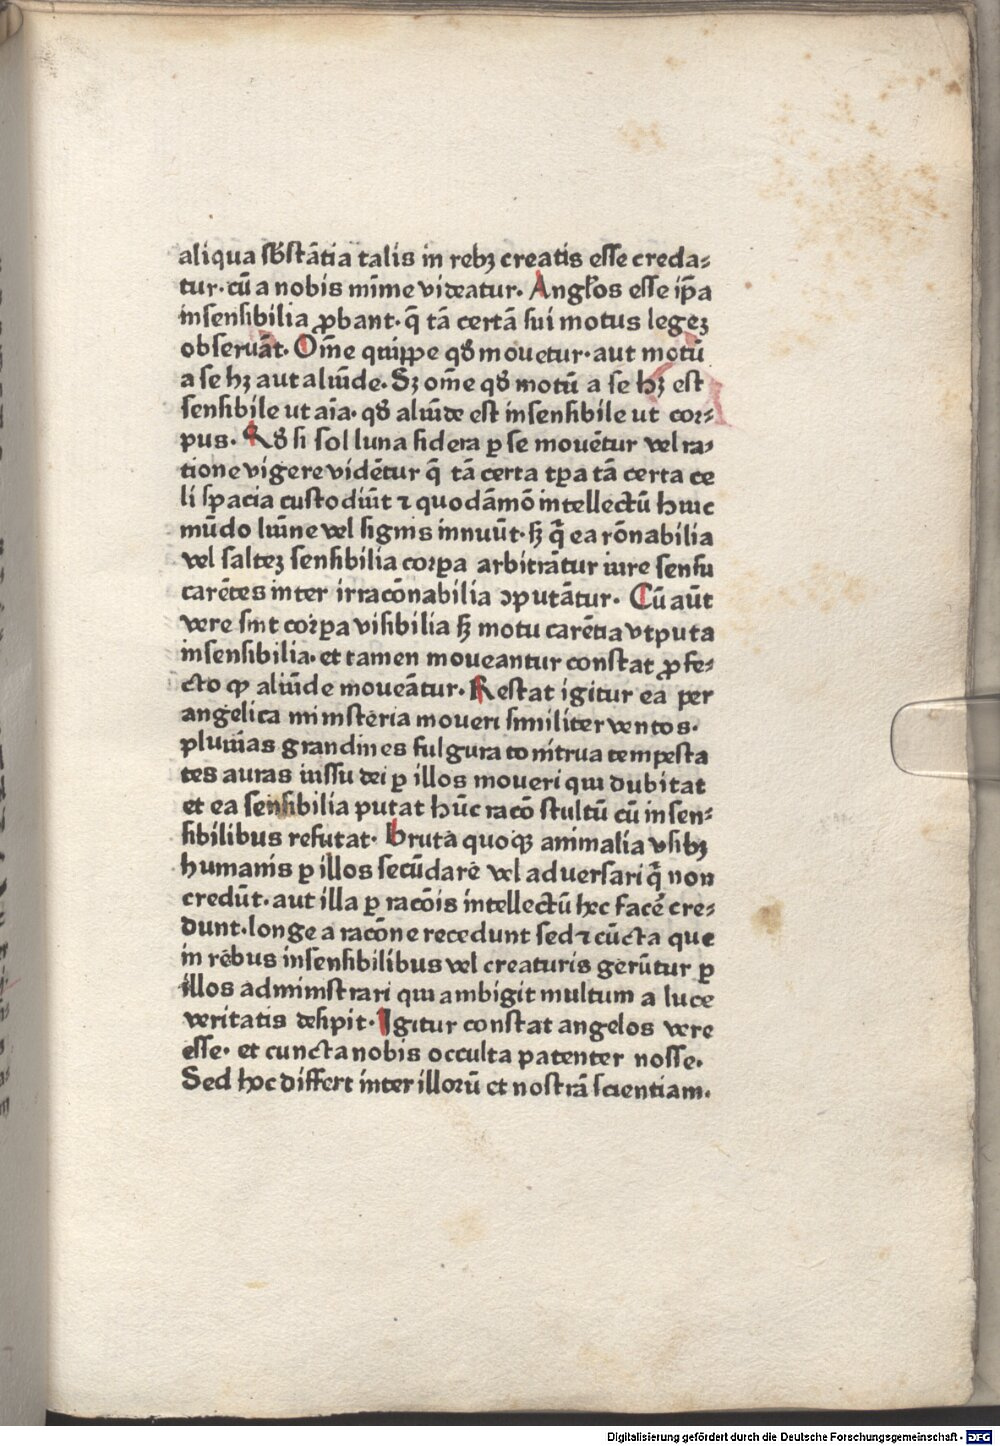 aliqua sb̄stātia talis in rebꝫ creatis esse creda⸗
tur·cū a nobis mīme videatur. Angl̄os esse ip̄a
insensibilia ꝓbant·q̄ tā certā sui motus legeꝫ
obseruāt. Om̄e quippe qd̄ mouetur·aut motū
a se hꝫ aut aliūde. Sꝫ om̄e qd̄ motū a se hꝫ est
sensibile ut aīa· qd̄ aliūde est insensibile ut cor⸗
pus. Qd̄ si sol luna sidera ꝑ se mouētur vel ra⸗
tione vigere vidētur q̄ tā certa tꝑa tā certa ce
li spacia custodiūt ⁊ quodāmō intellectū huic
mūdo lūīne vel signis innuūt·sꝫ q̄ ea rōnabilia
vel salteꝫ sensibilia corꝑa arbitrātur iure sensu
carētes inter irracōnabilia ꝯputātur. Cū aūt
vere sint corꝑa visibilia sꝫ motu carētia vtputa
insensibilia·et tamen moueantur constat ꝓfe⸗
cto ꝙ aliūde moueātur. Restat igitur ea per
angelica ministeria moueri similiter ventos·
pluuīas grandines fulgura tonitrua tempesta
tes auras iussu dei ꝑ illos moueri qui dubitat
et ea sensibilia putat hūc racō stultū cū insen⸗
sibilibus refutat. Bruta quoqꝫ animalia vsibꝫ
humanis ꝑ illos secūdarē vel aduersari q̄ non
credūt·aut illa ꝑ racōis intellectū hec facē cre⸗
dunt·longe a racōne recedunt sed ⁊ cūcta que
in rebus insensibilibus vel creaturis gerūtur ꝑ
illos administrari qui ambigit multum a luce
veritatis desipit. Igitur constat angelos vere
esse· et cuncta nobis occulta patenter nosse.
Sed hoc differt inter illorū et nostrā scientiam.
Digitalisierung gefördert durch die Deutsche Forschungsgemeinschaft - DFG